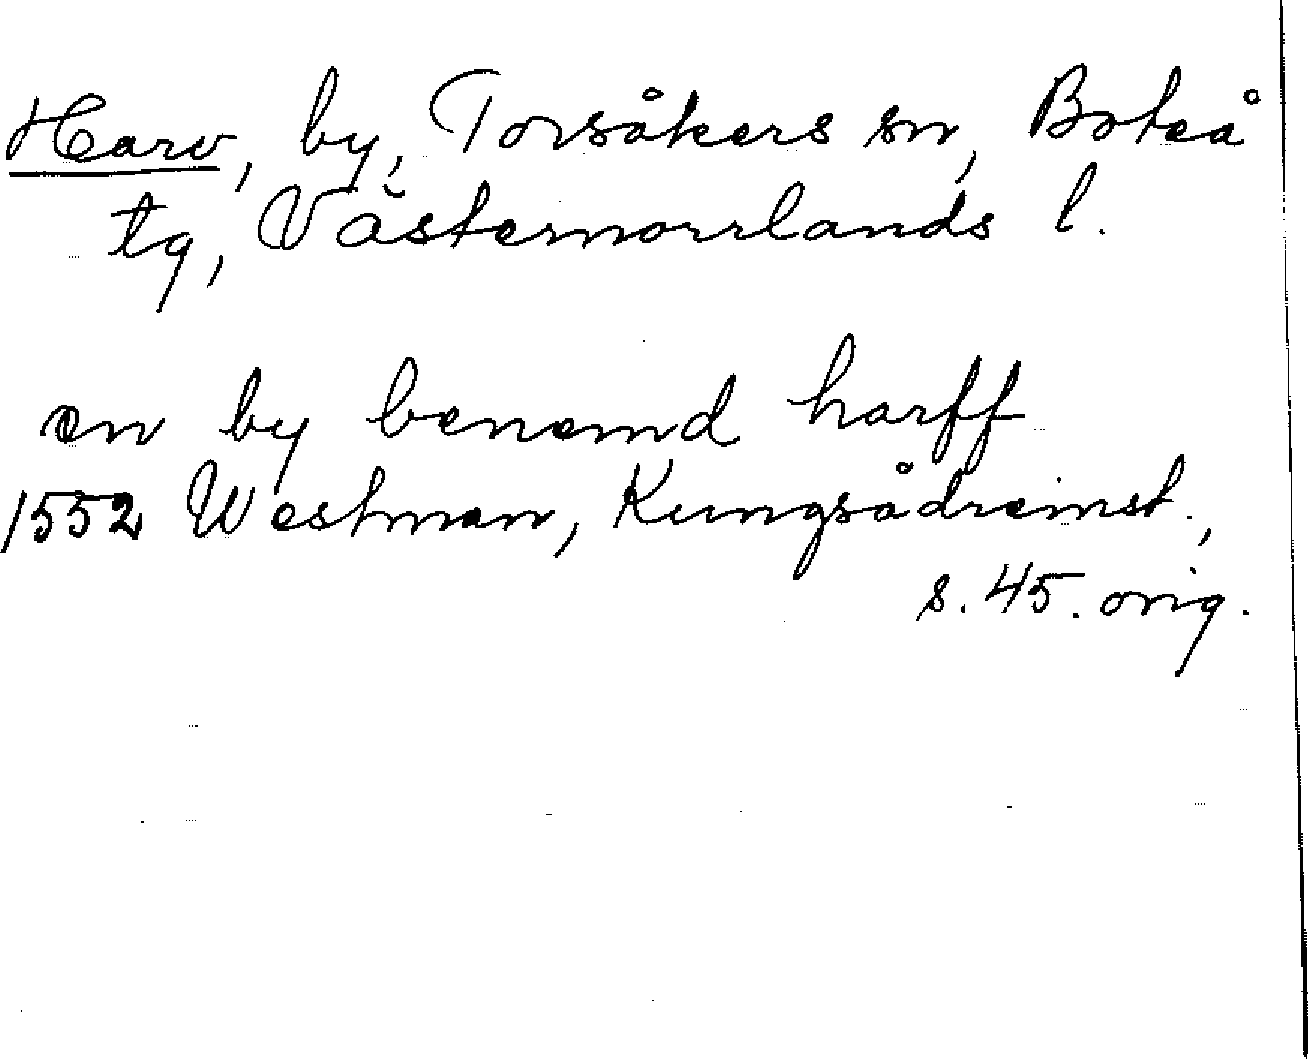 Harv, by, Torsåkers sn, Boteå
tg, Västernorrlands l.
en by benemd harff
1552 Westman, Kungsådreinst.,
s. 45. orig.